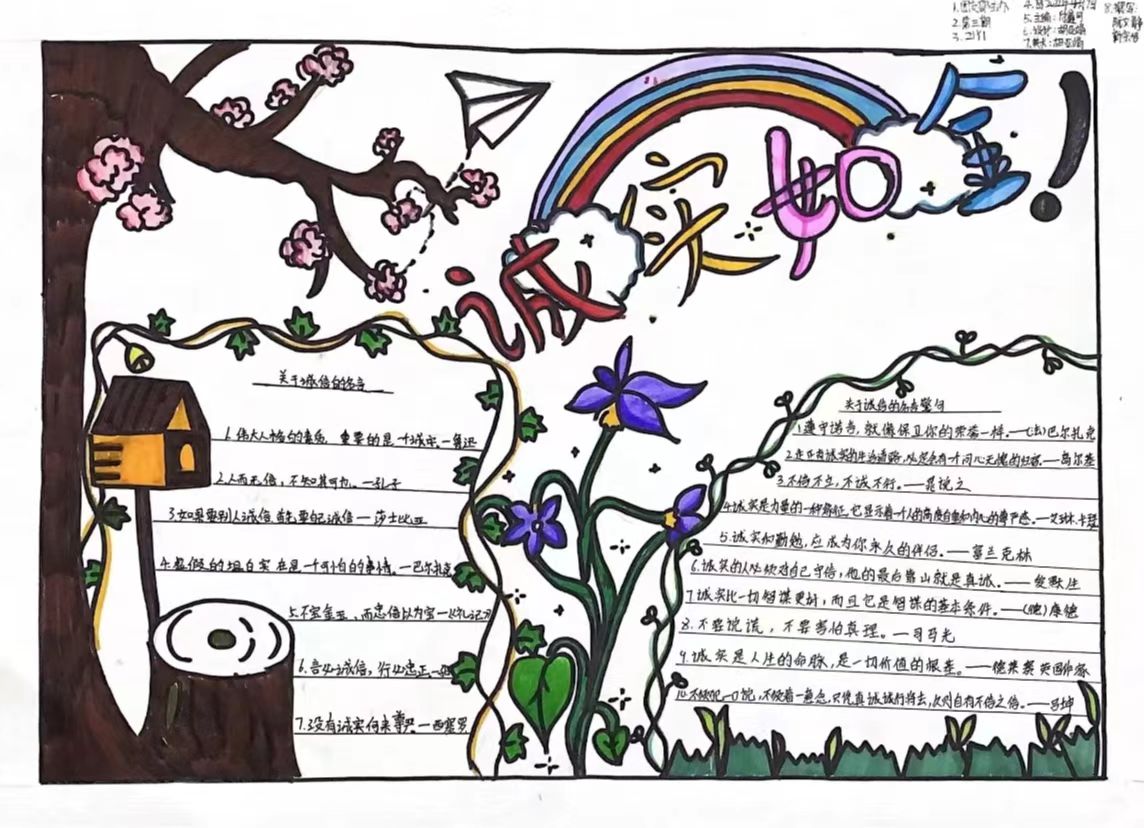 2.第三期
诚实如金！
关于诚信的名言
1.伟大人格的素质，重要的是一个诚字。—鲁迅
2.人而无信，不知其可也。—孔子
3.如果要别人诚信，首先要自己诚信—莎士比亚
4.虚假的坦白实在是一个可怕的事情。—巴尔扎克
5.不宝金玉，而忠信以为宝—《礼记》
6.言必诚信，行必忠正—
7.没有诚实何来尊严—西塞罗
关于诚信的名言警句
1.遵守诺言，就像保卫你的荣誉一样。——(法)巴尔扎克
2.走正直诚实的生活道路，必定会有一个问心无愧的归宿——高尔基
3.不信不立，不诚不行。——晁说之
4.诚实是力量的一种象征，它显示着一个人的高度自重和内心的尊严感。——艾琳·卡瑟
5.诚实和勤勉，应成为你永久的伴侣。——富兰克林
6.诚实的人必须对自己守信，他的最后靠山就是真诚。——爱默生
7.诚实比一切智谋更好，而且它是智谋的基本条件。——(德)康德
8.不要说谎，不要害怕真理。——
9.诚实是人生的命脉，是一切价值的根基。——德莱赛 英国作家
10.不须犯一口说，不须着一意念，只恁真诚诚行将去，久则自有不信之信。——吕坤